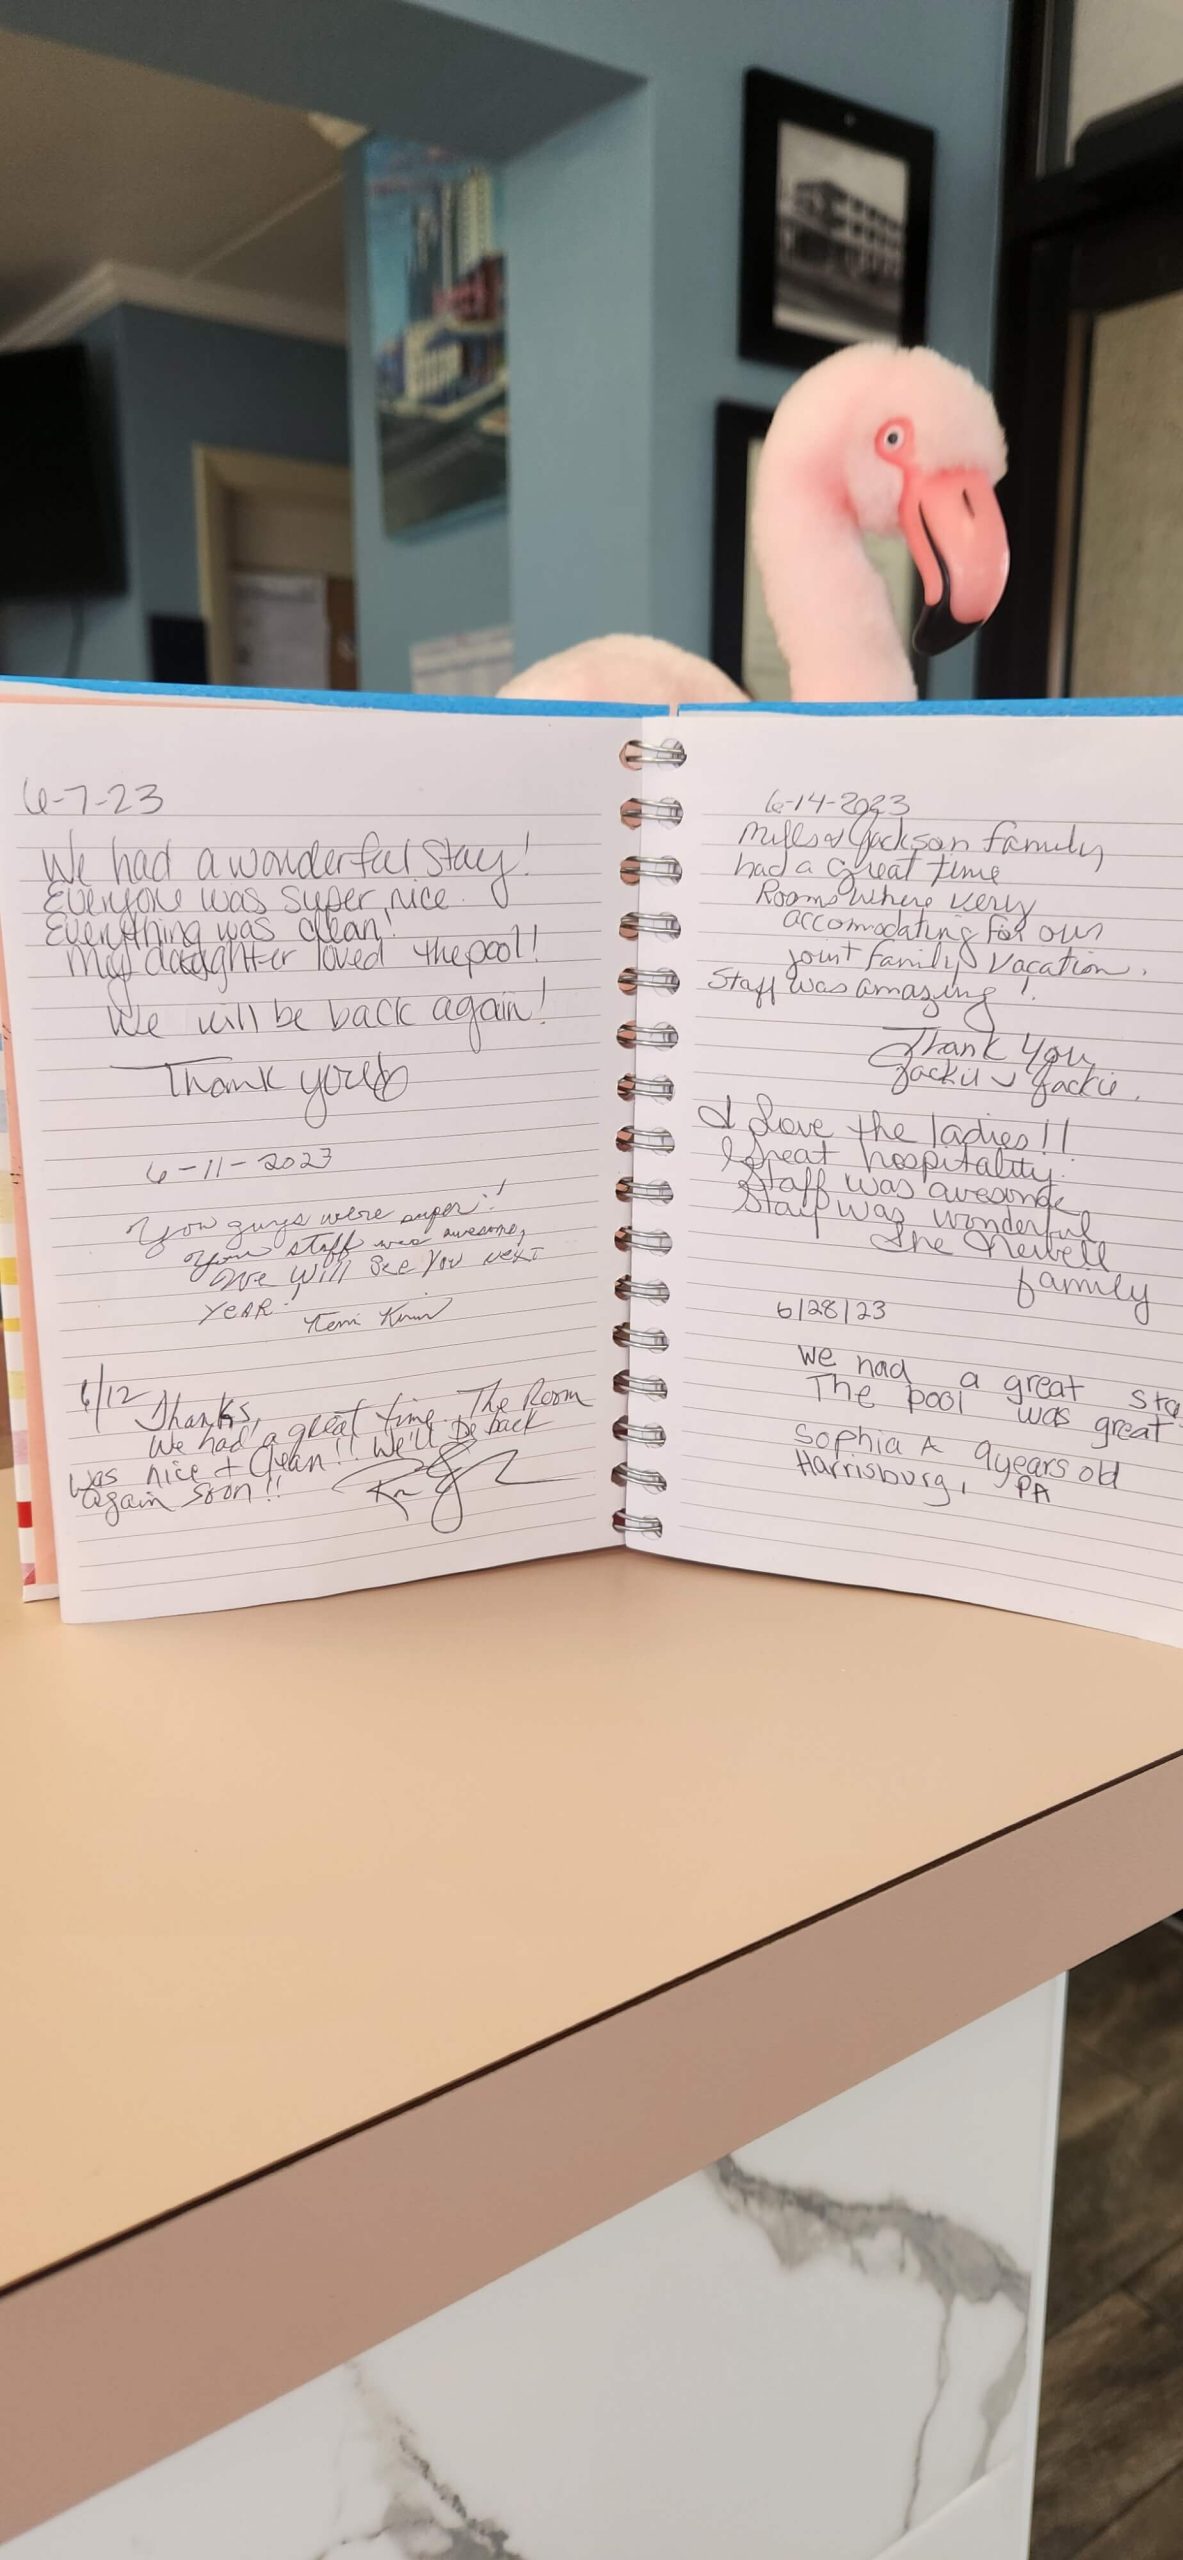 6-7-23
We had a wonderful stay!
Everyone was super nice.
Everything was clean!
My daughter loved the pool!
We will be back again!
Thank you
6-11-2023
You guys were super!
Your staff was awesome,
We will see you next
YEAR!
6/12 Thanks,
We had a great time. The Room
was nice + Clean!! We'll be back
again soon!!
6-14-2023
Mills & Jackson family
had a great time
Rooms where very
accomodating for our
joint family vacation.
Staff was amazing!
Thank You
Jackie & Jackie.
I love the ladies!!
Great hospitality.
Staff was awesome
Stay was wonderful
The Newell
family
6/28/23
We had a great sta
The pool was great
Sophia A 9years old
Harrisburg, PA